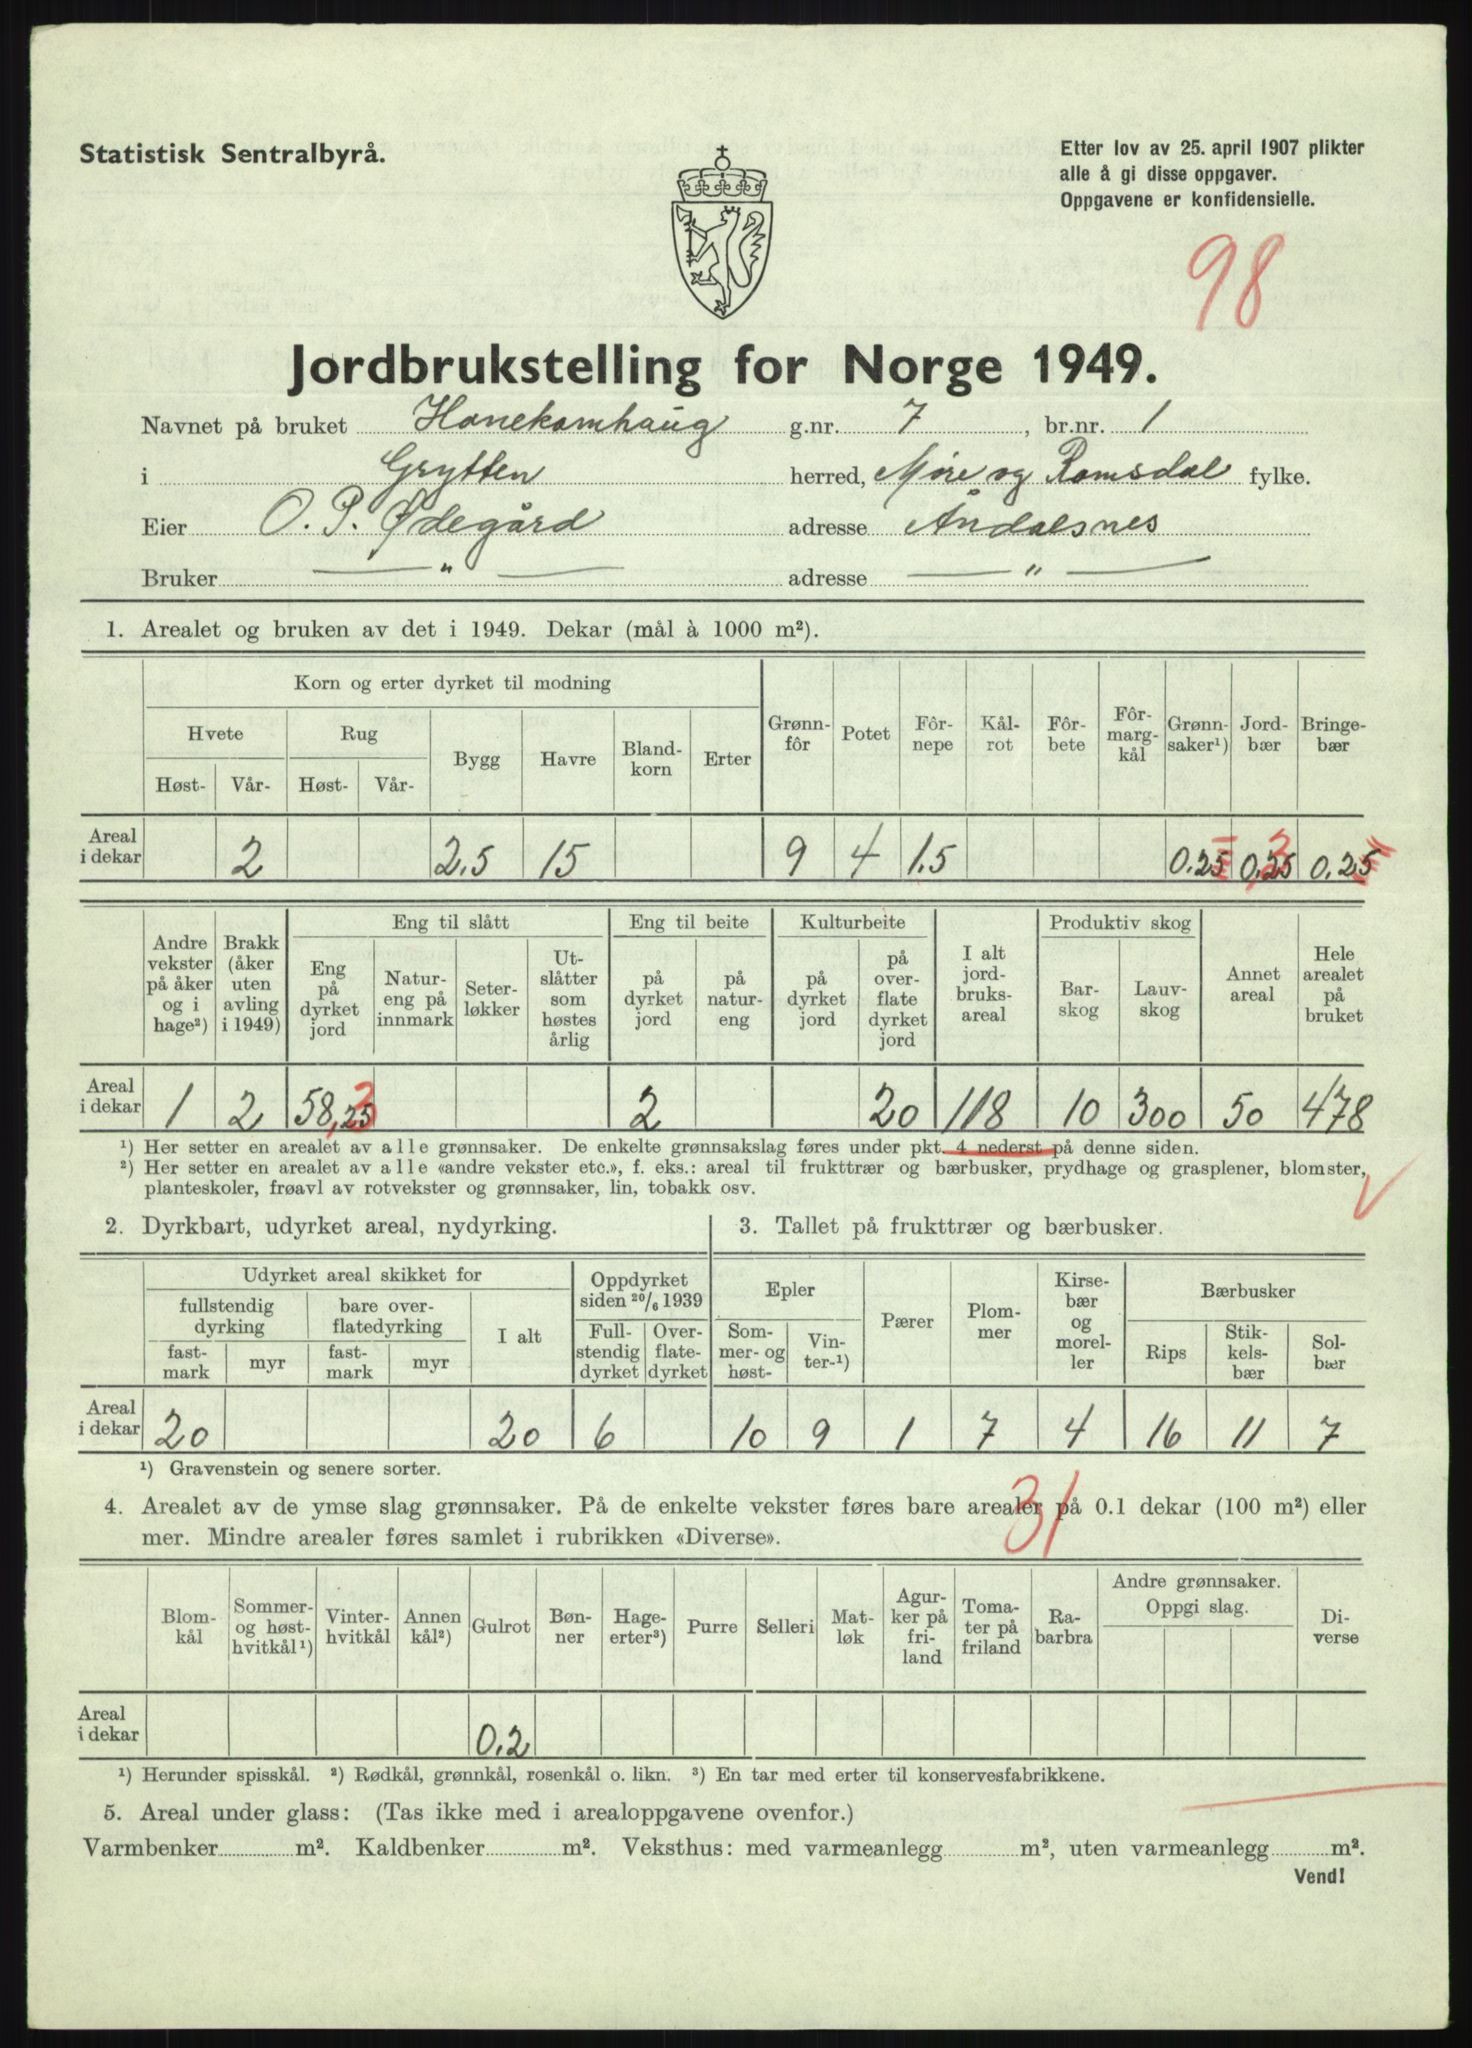 Statistisk Sentralbyrå.
Etter lov av 25. april 1907 plikter
alle å gi disse oppgaver.
Oppgavene er konfidensielle.
98
Jordbrukstelling for Norge 1949.
Navnet på bruket Hanekamhaug g.nr. 7, br.nr. 1
i Grytten herred, Møre og Romsdal fylke.
Eier O. P. Ødegård adresse Åndalsnes
Bruker — " — adresse — " —
1. Arealet og bruken av det i 1949. Dekar (mål à 1000 m²).
Korn og erter dyrket til modning
Hvete Rug Bygg Havre Bland-korn Erter Grønn-fôr Potet Fôr-nepe Kål-rot Fôr-bete Fôr-marg-kål Grønn-saker¹) Jord-bær Bringe-bær
Høst- Vår- Høst- Vår-
Areal i dekar 2 2,5 15 9 4 1.5 0.25 0,25 3 0,25
Eng til slått Eng til beite Kulturbeite Produktiv skog
Andre vekster på åker og i hage²) Brakk (åker uten avling i 1949) Eng på dyrket jord Natur-eng på innmark Seter-løkker Ut-slåtter som høstes årlig på dyrket jord på natur-eng på dyrket jord på over-flate dyrket jord I alt jord-bruks-areal Bar-skog Lauv-skog Annet areal Hele arealet på bruket
Areal i dekar 1 2 58,25 3 2 20 118 10 300 50 478
¹) Her setter en arealet av alle grønnsaker. De enkelte grønnsakslag føres under pkt. 4 nederst på denne siden.
²) Her setter en arealet av alle «andre vekster etc.», f. eks.: areal til frukttrær og bærbusker, prydhage og grasplener, blomster,
planteskoler, frøavl av rotvekster og grønnsaker, lin, tobakk osv.
2. Dyrkbart, udyrket areal, nydyrking.
Udyrket areal skikket for
fullstendig dyrking bare over-flatedyrking I alt Oppdyrket siden 20/6 1939
fast-mark myr fast-mark myr Full-stendig dyrket Over-flate-dyrket
Areal i dekar 20 20 6
3. Tallet på frukttrær og bærbusker.
Epler Pærer Plom-mer Kirse-bær og morel-ler Bærbusker
Som-mer- og høst- Vin-ter-¹) Rips Stik-kels-bær Sol-bær
10 9 1 7 4 16 11 7
¹) Gravenstein og senere sorter.
31
4. Arealet av de ymse slag grønnsaker. På de enkelte vekster føres bare arealer på 0.1 dekar (100 m²) eller
mer. Mindre arealer føres samlet i rubrikken «Diverse».
Blom-kål Sommer- og høst-hvitkål¹) Vinter-hvitkål Annen kål²) Gulrot Bøn-ner Hage-erter³) Purre Selleri Mat-løk Agur-ker på fri-land Toma-ter på friland Ra-barbra Andre grønnsaker. Oppgi slag. Di-verse
Areal i dekar 0.2
¹) Herunder spisskål. ²) Rødkål, grønnkål, rosenkål o. likn. ³) En tar med erter til konservesfabrikkene.
5. Areal under glass: (Tas ikke med i arealoppgavene ovenfor.)
Varmbenker m². Kaldbenker m². Veksthus: med varmeanlegg m², uten varmeanlegg m².
Vend!